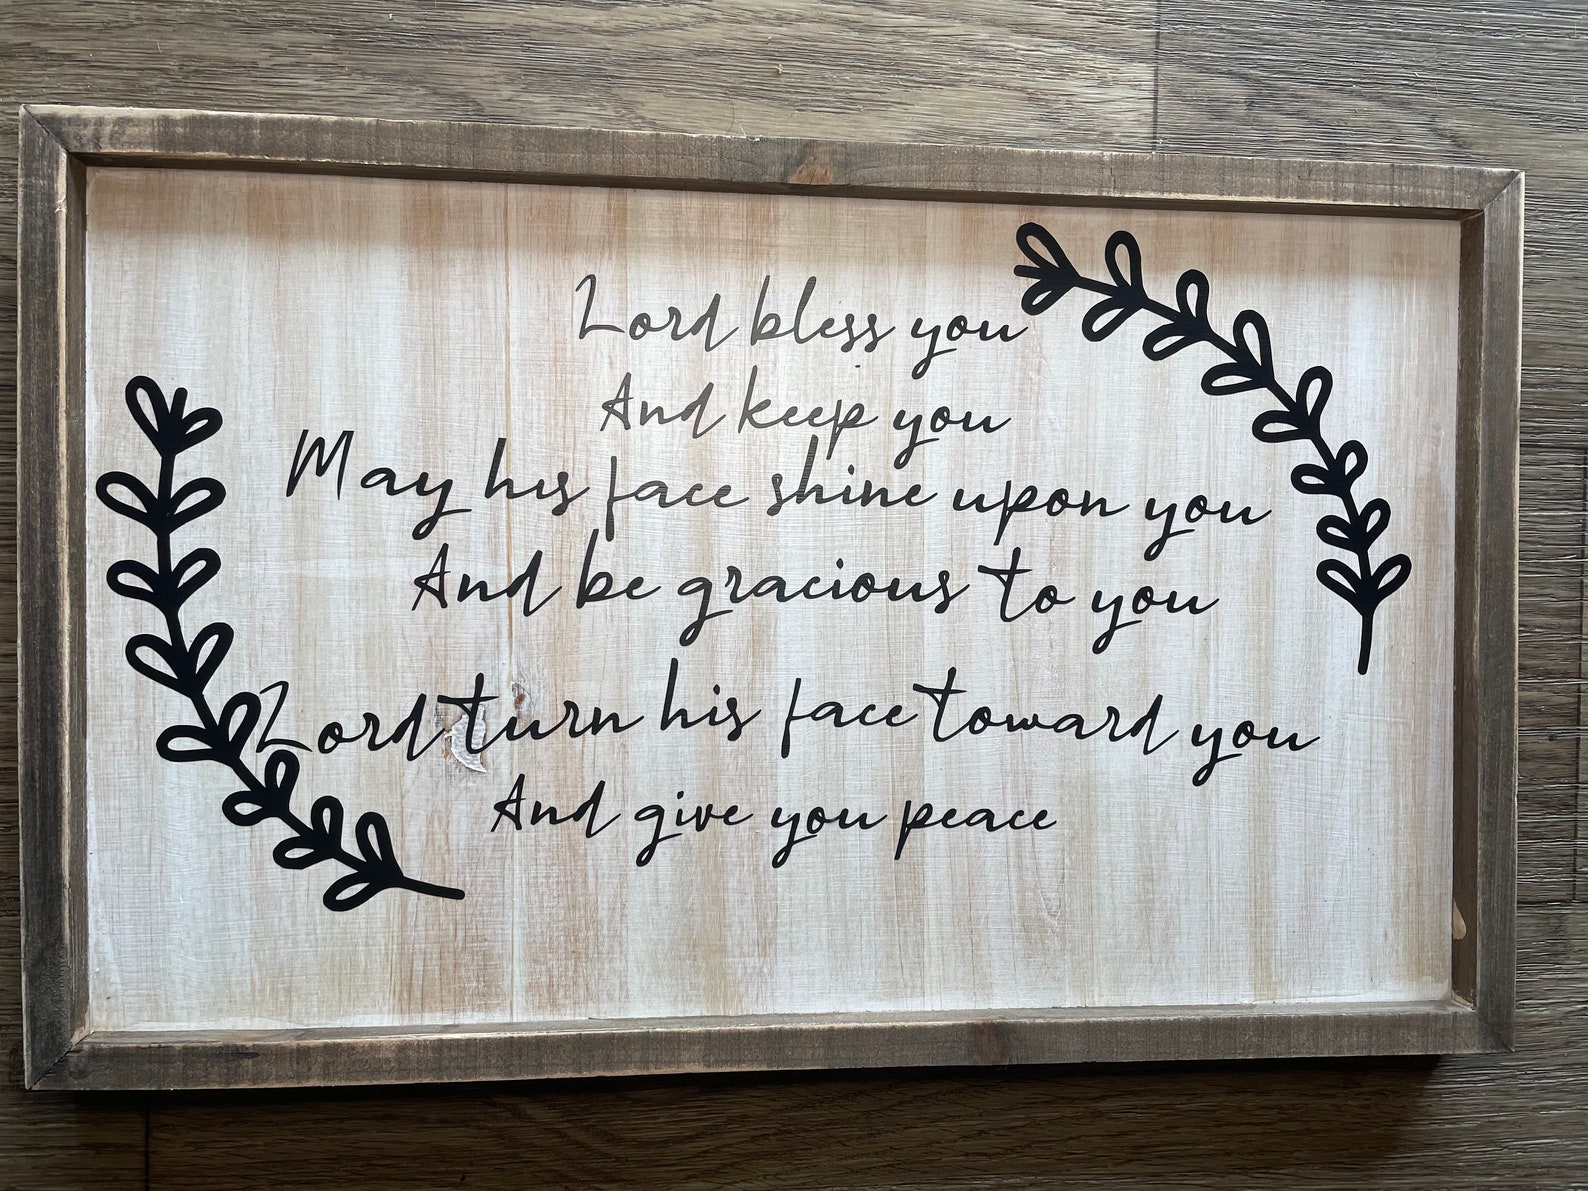 Lord bless you
And keep you
May his face shine upon you
And be gracious to you
Lord turn his face toward you
And give you peace